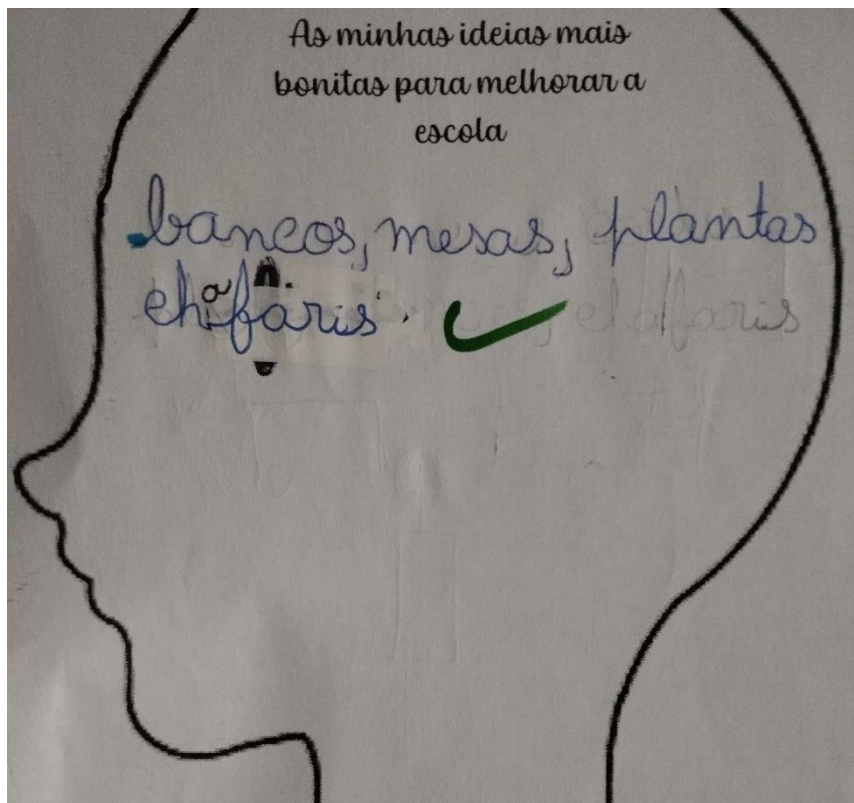 As minhas ideias mais
bonitas para melhorar a
escola
bancos, mesas, plantas
chafaris.